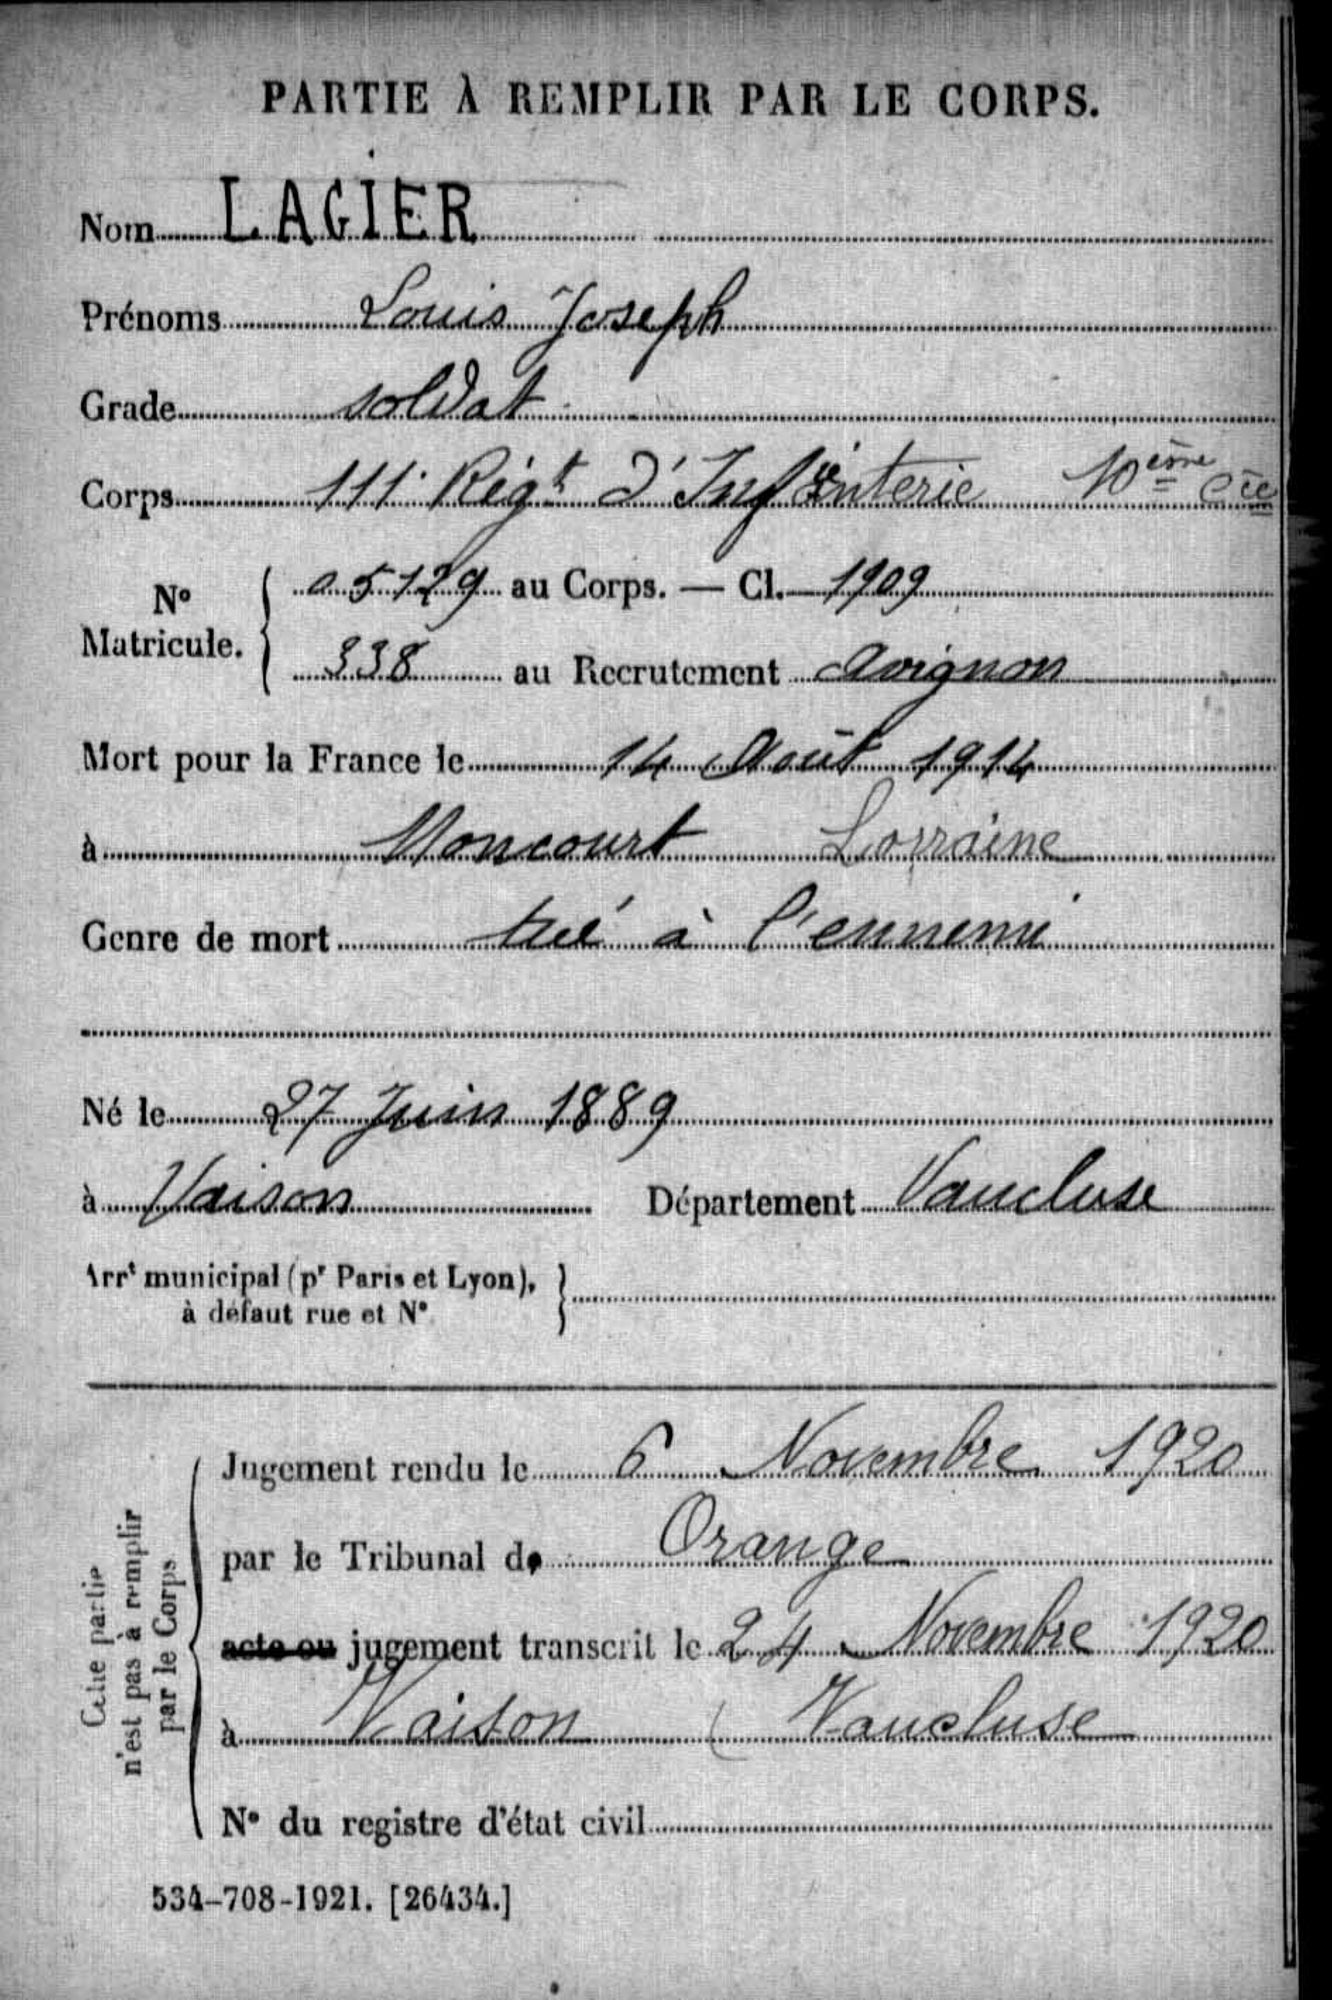 PARTIE À REMPLIR PAR LE CORPS.
Nom LAGIER
Prénoms Louis Joseph
Grade soldat
Corps 111e Régt d'Infanterie 10ème Cie
No Matricule. { 05129 au Corps. — Cl. 1909
338 au Recrutement Avignon
Mort pour la France le 14 Août 1914
à Moncourt Lorraine
Genre de mort tué à l'ennemi
Né le 27 Juin 1889
à Vaison Département Vaucluse
Arrt municipal (pr Paris et Lyon), à défaut rue et No }
Cette partie n'est pas à remplir par le Corps
Jugement rendu le 6 Novembre 1920
par le Tribunal de Orange
acte ou jugement transcrit le 24 Novembre 1920
à Vaison (Vaucluse
No du registre d'état civil
534-708-1921. [26434.]